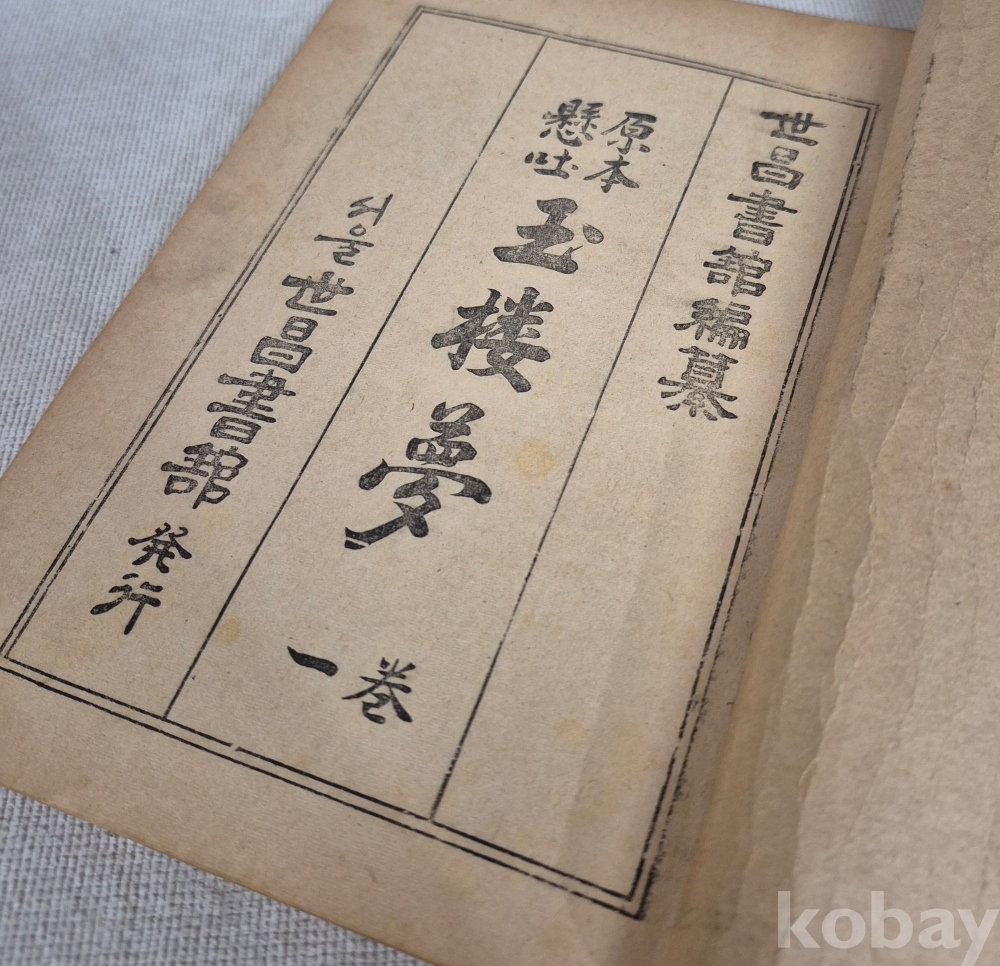 世昌書館編纂
原本
懸吐
玉楼夢
巻一
서울 世昌書館 発行
kobay